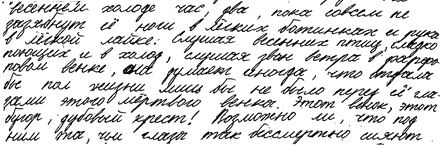 весеннем холоде час, два, пока совсем не
зазябнут её ноги в лёгких ботинках и рука
в лёгкой лайке. Слушая весенних птиц, сладко
поющих и в холод, слушая звон ветра в фарфо-
ровом венке, она думает иногда, что отдала
бы пол жизни лишь бы не было перед её гла-
зами этого мёртвого венка. Этот венок, этот
бугор, дубовый крест! Возможно ли, что под
ним та, чьи глаза так бессмертно сияют